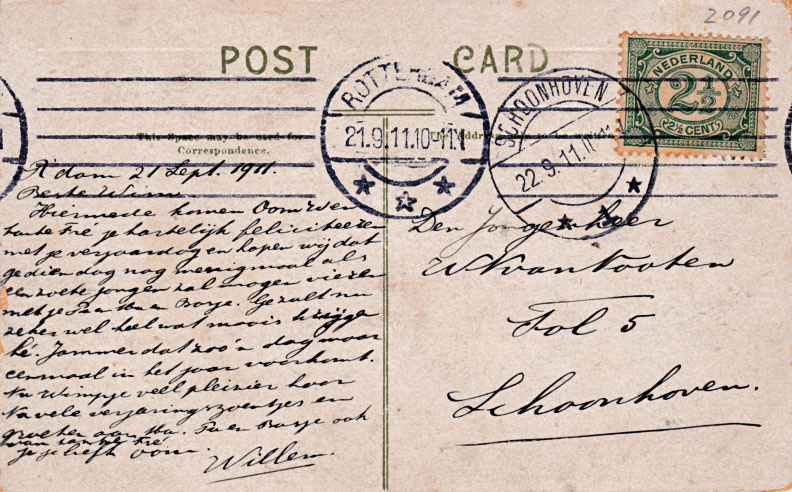 2091
POST CARD
NEDERLAND
2½
2½ CENT
ROTTERDAM
21.9.11.10-11.V
SCHOONHOVEN
22.9.11.11
This Space may be used for
Correspondence.
R'dam 21 Sept. 1911.
Beste Wim
Hiermede komen Oom en
tante Fré je hartelijk feliciteeren
met je verjaardag en hopen wij dat
je dien dag nog menigmaal als
een zoete jongen zal mogen vieren
met je Pa en Ma en Broertje. Je zult nu
zeker wel heel wat moois krijgen
hé. Jammer dat zoo'n dag maar
eenmaal in het jaar voorkomt.
Nu Wimpje veel pleizier hoor
Na vele verjaringszoentjes en
groeten aan Ma. Pa en ook
van tante Fré
je je liefh oom.
Willem.
Den Jongenheer
W van Nooten
Tol 5
Schoonhoven.